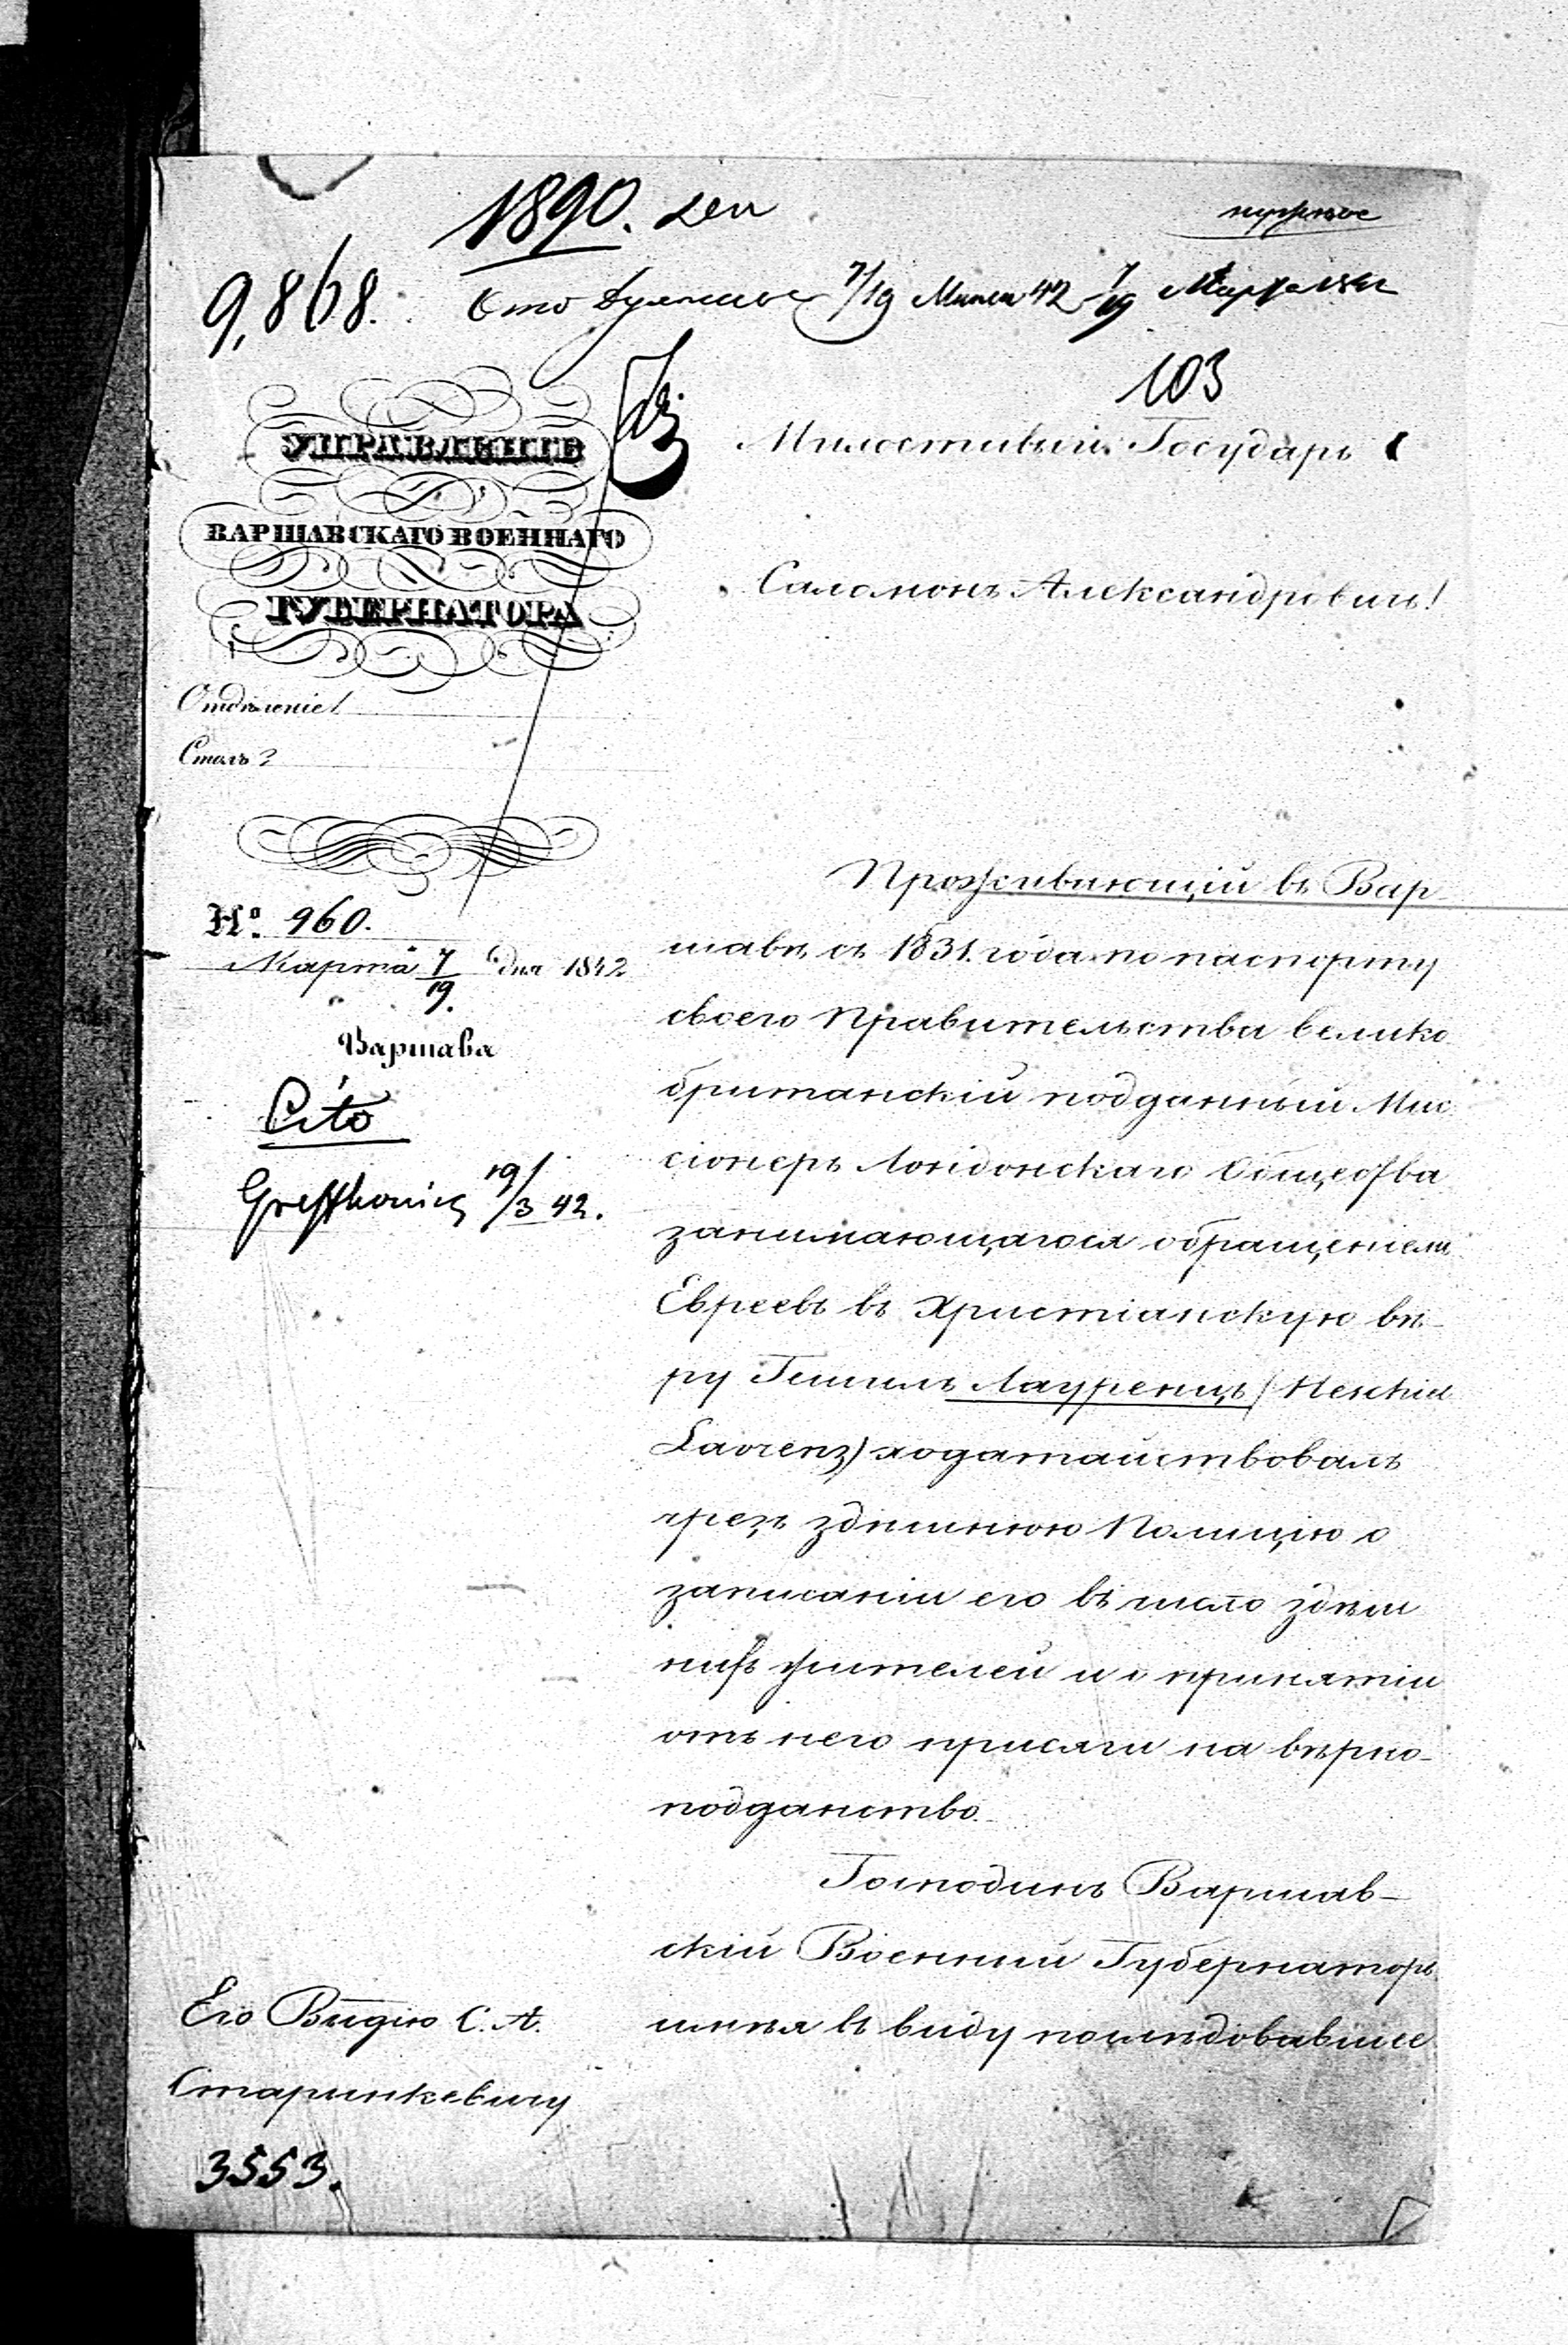 1890.
9,868.
7/19 42 7/19
103
УПРАВЛЕНІЕ
ВАРШАВСКАГО ВОЕННАГО
ГУБЕРНАТОРА
Отдѣленіе 1
Столъ 2
№. 960.
Марта 7/19. дня 1842
Варшава
Cito
19/3 42.
Милостивый Государь
Саломонъ Александровичъ!
Проживающій въ Вар-
шавѣ съ 1831. года по паспорту
своего Правительства велико
британскій подданный Мис
сіонеръ Лондонскаго Общества
занимающагося обращеніемъ
Евреевъ въ Христіанскую вѣ-
ру Гешкель Лауренцъ (Heschkel
Laurenz) ходатайствовалъ
чрезъ здѣшнюю Полицію о
записаніи его въ число здѣш
нихъ жителей и о принятіи
отъ него присяги на вѣрно-
подданство.
Господинъ Варшав-
скій Военный Губернаторъ
имѣя въ виду послѣдовавшее
Его Врдію С. А.
Старинкевичу
3553.